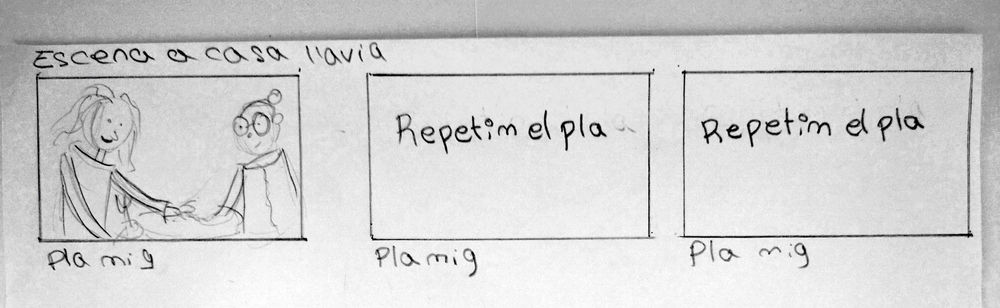 Escena a casa l'lavia
Repetim el pla
Repetim el pla
Pla mig
Pla mig
Pla mig